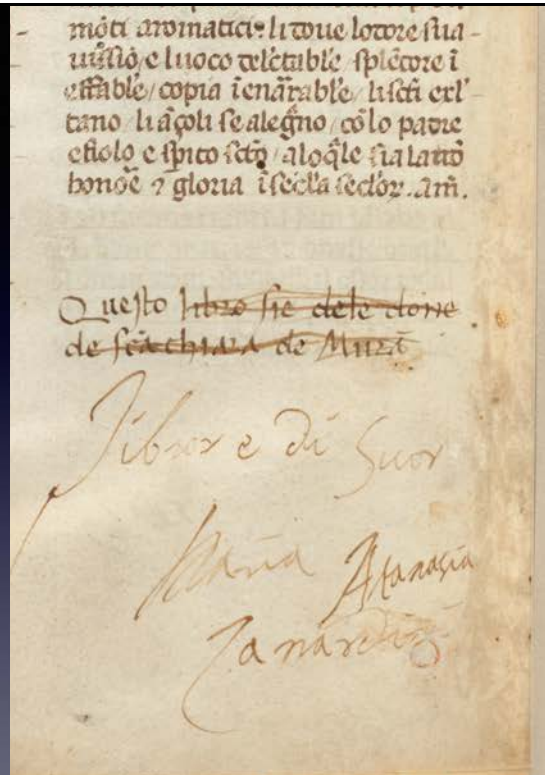 mōti aromatici: li doue lodore sua-
uissīo, e luoco delectable, splēdore ī
effable, copia īenarrable, li scti exl'
tano, li āgoli se alegrno, cō lo padre
e fiolo e spirito scto, alo q̄le sia laude
honore ⁊ gloria ī secl'a seclor. am̄.
Questo libro sie dele done
de scā chiara de Murā
Libror e di Suor
Maria Atanasia
Zanardin